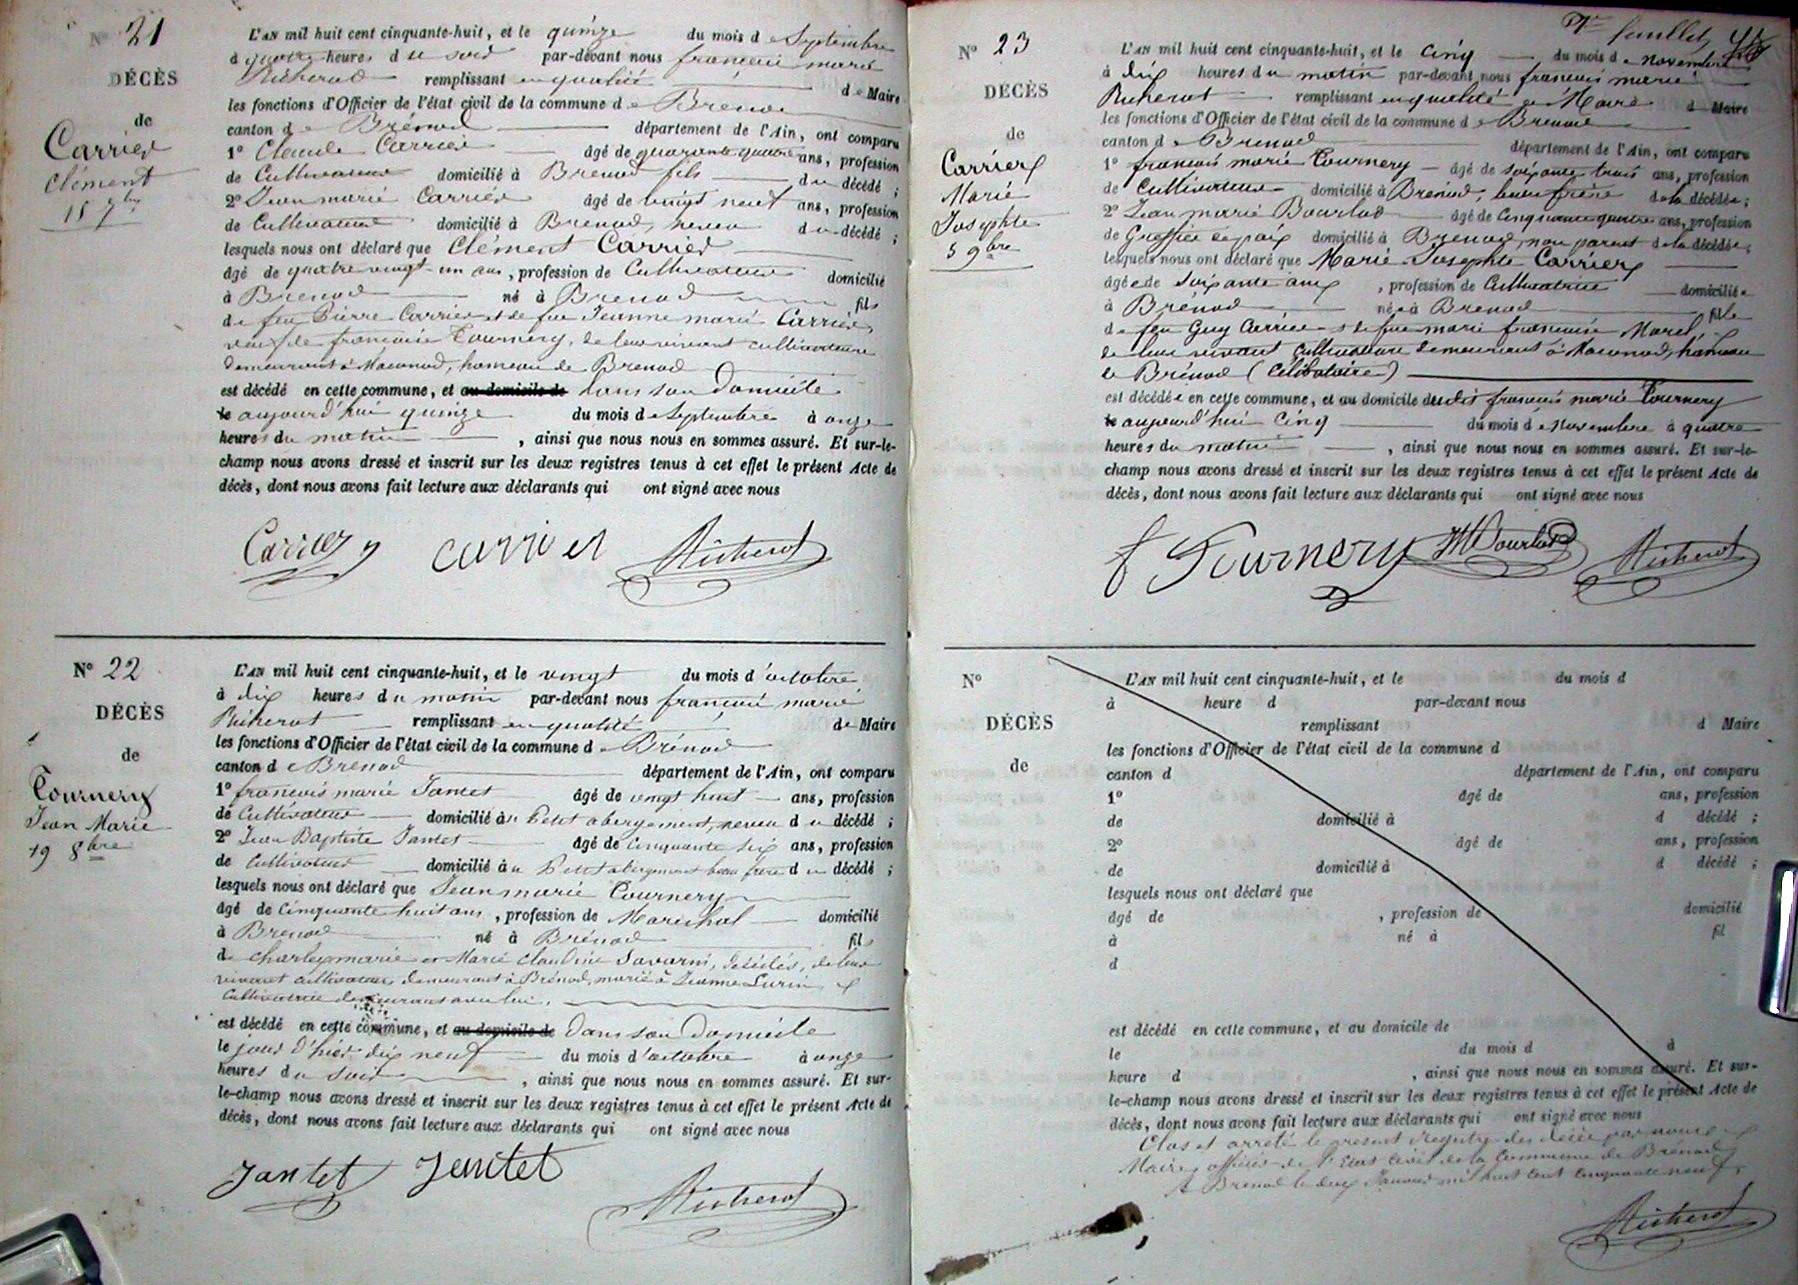 N° 21
DÉCÈS
de
Carrier
Clément
15 7bre
L'AN mil huit cent cinquante-huit, et le quinze du mois de Septembre
à quatre heures du soir par-devant nous francois marie
Richerot remplissant en qualité de Maire
les fonctions d'Officier de l'état civil de la commune de Brenod
canton de Brénod département de l'Ain, ont comparu
1° Claude Carrier âgé de quarante quatre ans, profession
de Cultivateur domicilié à Brenod fils du décédé ;
2° Jean marie Carrier âgé de vingt neuf ans, profession
de Cultivateur domicilié à Brenod, neveu du décédé ;
lesquels nous ont déclaré que Clément Carrier
âgé de quatre vingt un ans, profession de Cultivateur domicilié
à Brenod né à Brenod fils
de feu Pierre Carrier et de feue Jeanne marie Carrier,
veuf de francoise Tournery, de leur vivant cultivateurs
demeurant à Maconod, hameau de Brenod
est décédé en cette commune, et au domicile de dans son domicile
le aujourd'hui quinze du mois de Septembre à onze
heures du matin, ainsi que nous nous en sommes assuré. Et sur-le-
champ nous avons dressé et inscrit sur les deux registres tenus à cet effet le présent Acte de
décès, dont nous avons fait lecture aux déclarants qui ont signé avec nous
Carrier carrier Richerot
N° 22
DÉCÈS
de
Tournery
Jean Marie
19 8bre
L'AN mil huit cent cinquante-huit, et le vingt du mois d'octobre
à dix heures du matin par-devant nous francois marie
Richerot remplissant en qualité de Maire
les fonctions d'Officier de l'état civil de la commune de Brénod
canton de Brenod département de l'Ain, ont comparu
1° francois marie Jantet âgé de vingt huit ans, profession
de Cultivateur domicilié au Petit abergement, neveu du décédé ;
2° Jean Baptiste Jantet âgé de Cinquante six ans, profession
de Cultivateur domicilié au Petit abergement beau frere du décédé ;
lesquels nous ont déclaré que Jean marie Tournery
âgé de Cinquante huit ans, profession de Maréchal domicilié
à Brenod né à Brénod fils
de charles marie et Marie Claudine Savarin, décédés, de leur
vivant cultivateurs demeurant à Brénod, marié à Jeanne
Cultivatrice demeurant avec lui.
est décédé en cette commune, et au domicile de dans son domicile
le jour d'hier dix neuf du mois d'octobre à onze
heures du soir, ainsi que nous nous en sommes assuré. Et sur-
le-champ nous avons dressé et inscrit sur les deux registres tenus à cet effet le présent Acte de
décès, dont nous avons fait lecture aux déclarants qui ont signé avec nous
Jantet Jentet Richerot
feuillet
N° 23
DÉCÈS
de
Carrier
Marie
Josephte
5 9bre
L'AN mil huit cent cinquante-huit, et le cinq du mois de novembre
à dix heures du matin par-devant nous francois marie
Richerot remplissant en qualité de Maire d Maire
les fonctions d'Officier de l'état civil de la commune de Brenod
canton de Brenod département de l'Ain, ont comparu
1° francois marie Tournery âgé de soixante trois ans, profession
de Cultivateur domicilié à Brénod, beau frère de la décédée ;
2° Jean marie Bourlod âgé de Cinquante quatre ans, profession
de Greffier de paix domicilié à Brenod, non parent de la décédée ;
lesquels nous ont déclaré que Marie Josephte Carrier
âgée de soixante ans, profession de Cultivatrice domiciliée
à Brénod née à Brenod fille
de feu Guy Carrier et de feue marie francoise Morel,
de leur vivant cultivateurs demeurant à Maconod, hameau
de Brénod (célibataire)
est décédée en cette commune, et au domicile dudit francois marie Tournery
le aujourd'hui Cinq du mois de Novembre à quatre
heures du matin, ainsi que nous nous en sommes assuré. Et sur-le-
champ nous avons dressé et inscrit sur les deux registres tenus à cet effet le présent Acte de
décès, dont nous avons fait lecture aux déclarants qui ont signé avec nous
f Tournery JMBourlod Richerot
N°
DÉCÈS
de
L'AN mil huit cent cinquante-huit, et le du mois d
à heure d par-devant nous
remplissant d Maire
les fonctions d'Officier de l'état civil de la commune d
canton d département de l'Ain, ont comparu
1° âgé de ans, profession
de domicilié à d décédé ;
2° âgé de ans, profession
de domicilié à d décédé ;
lesquels nous ont déclaré que
âgé de , profession de domicilié
à né à fil
d
est décédé en cette commune, et au domicile de
le du mois d à
heure d , ainsi que nous nous en sommes assuré. Et sur-
le-champ nous avons dressé et inscrit sur les deux registres tenus à cet effet le présent Acte de
décès, dont nous avons fait lecture aux déclarants qui ont signé avec nous
Clos et arreté le present registre des décès par nous
Maire, officier de l'Etat civil de la Commune de Brénod
A Brenod le deux Janvier mil huit cent cinquante neuf.
Richerot